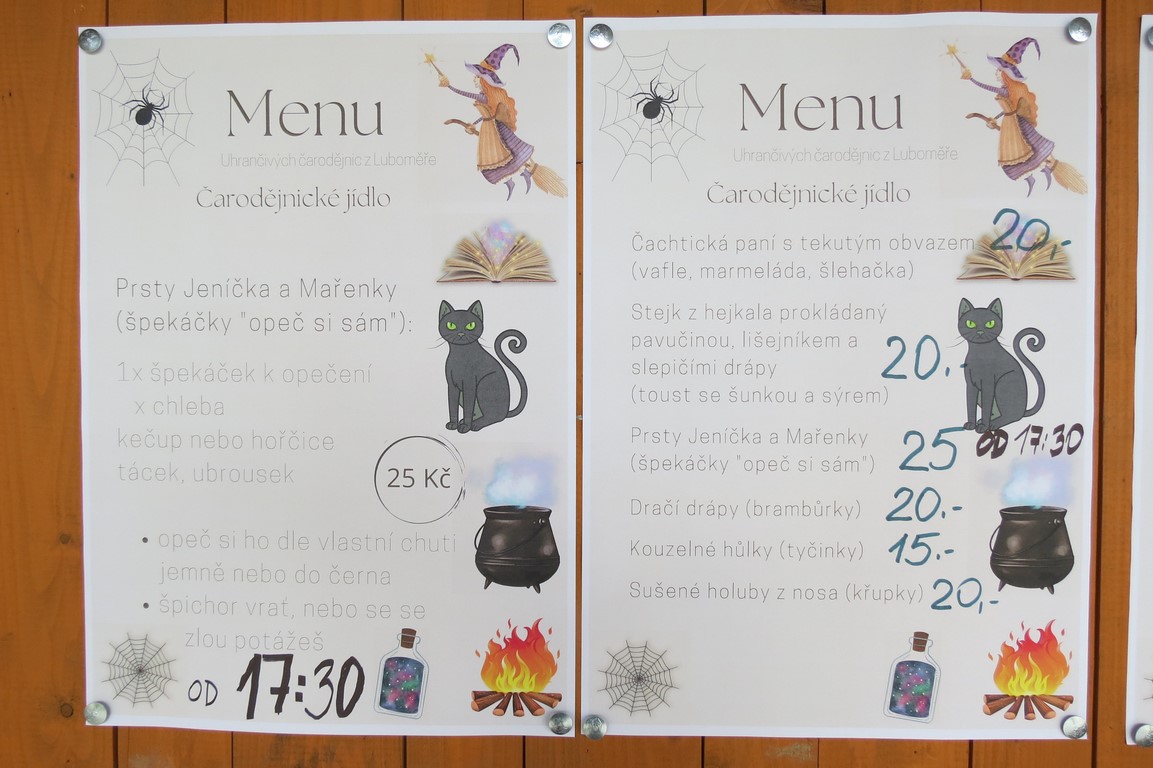 Menu
Uhrančivých čarodějnic z Luboměře
Čarodějnické jídlo
Prsty Jeníčka a Mařenky
(špekáčky "opeč si sám"):
1x špekáček k opečení
x chleba
kečup nebo hořčice
tácek, ubrousek
25 Kč
• opeč si ho dle vlastní chuti
jemně nebo do černa
• špichor vrať, nebo se se
zlou potážeš
OD 17:30
Menu
Uhrančivých čarodějnic z Luboměře
Čarodějnické jídlo
Čachtická paní s tekutým obvazem 20,-
(vafle, marmeláda, šlehačka)
Stejk z hejkala prokládaný
pavučinou, lišejníkem a
slepičími drápy 20.-
(toust se šunkou a sýrem)
Prsty Jeníčka a Mařenky 25 OD 17:30
(špekáčky "opeč si sám")
Dračí drápy (brambůrky) 20.-
Kouzelné hůlky (tyčinky) 15.-
Sušené holuby z nosa (křupky) 20,-